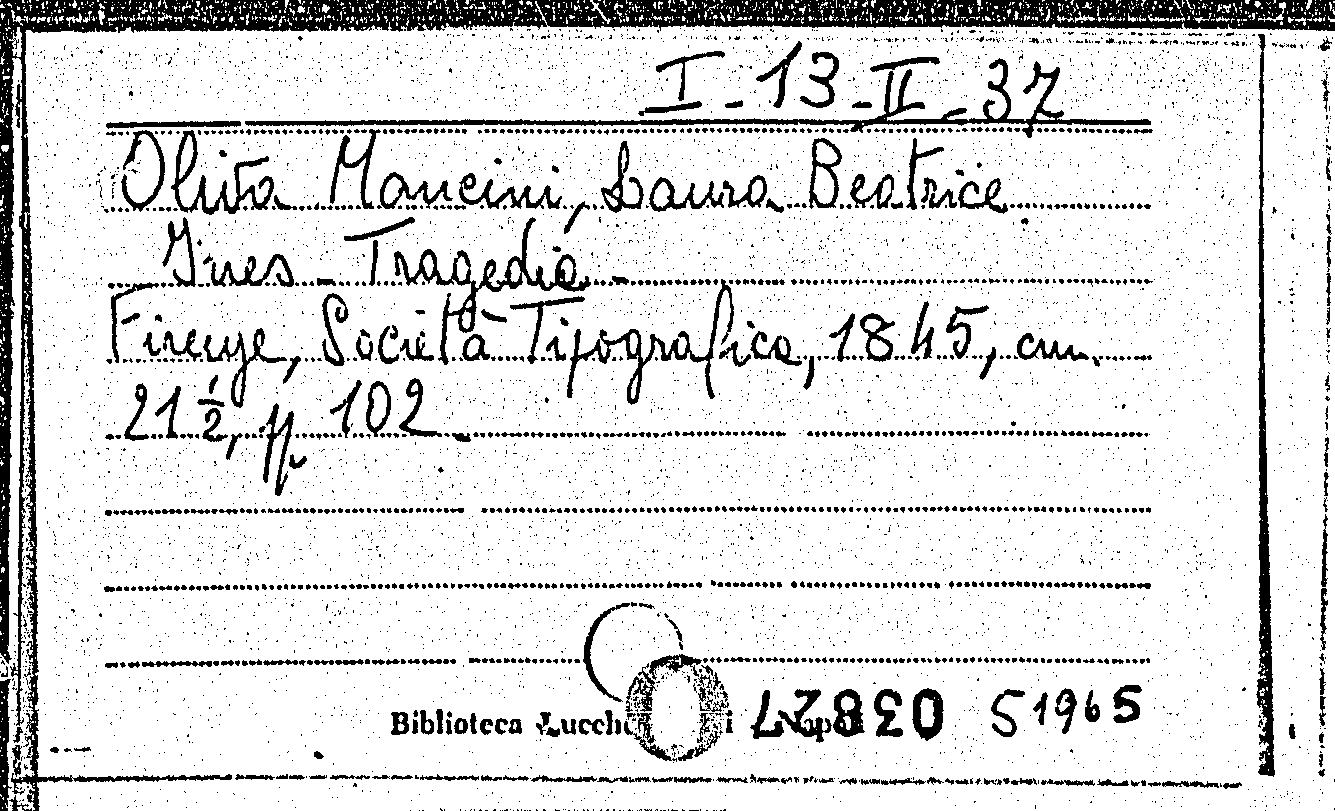 I-13-II-37
Oliva Mancini, Laura Beatrice
Ines - Tragedia -
Firenze, Società Tipografica, 1845, cm.
21 1/2, pp. 102
Biblioteca 51965